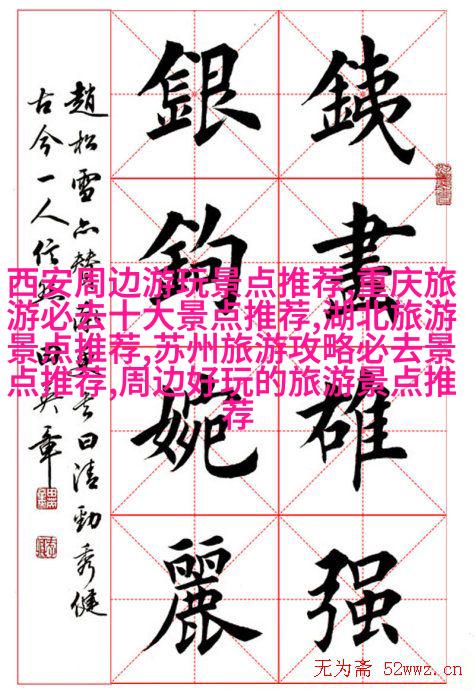 銕畫雄强
銀鉤婉麗
趙松雪亦曰清勁秀健
古今一人信然 田英章
西安周边游玩景点推荐,重庆旅
游必去十大景点推荐,湖北旅游
景点推荐,苏州旅游攻略必去景
点推荐,周边好玩的旅游景点推
荐
无为斋 52wwz.cn